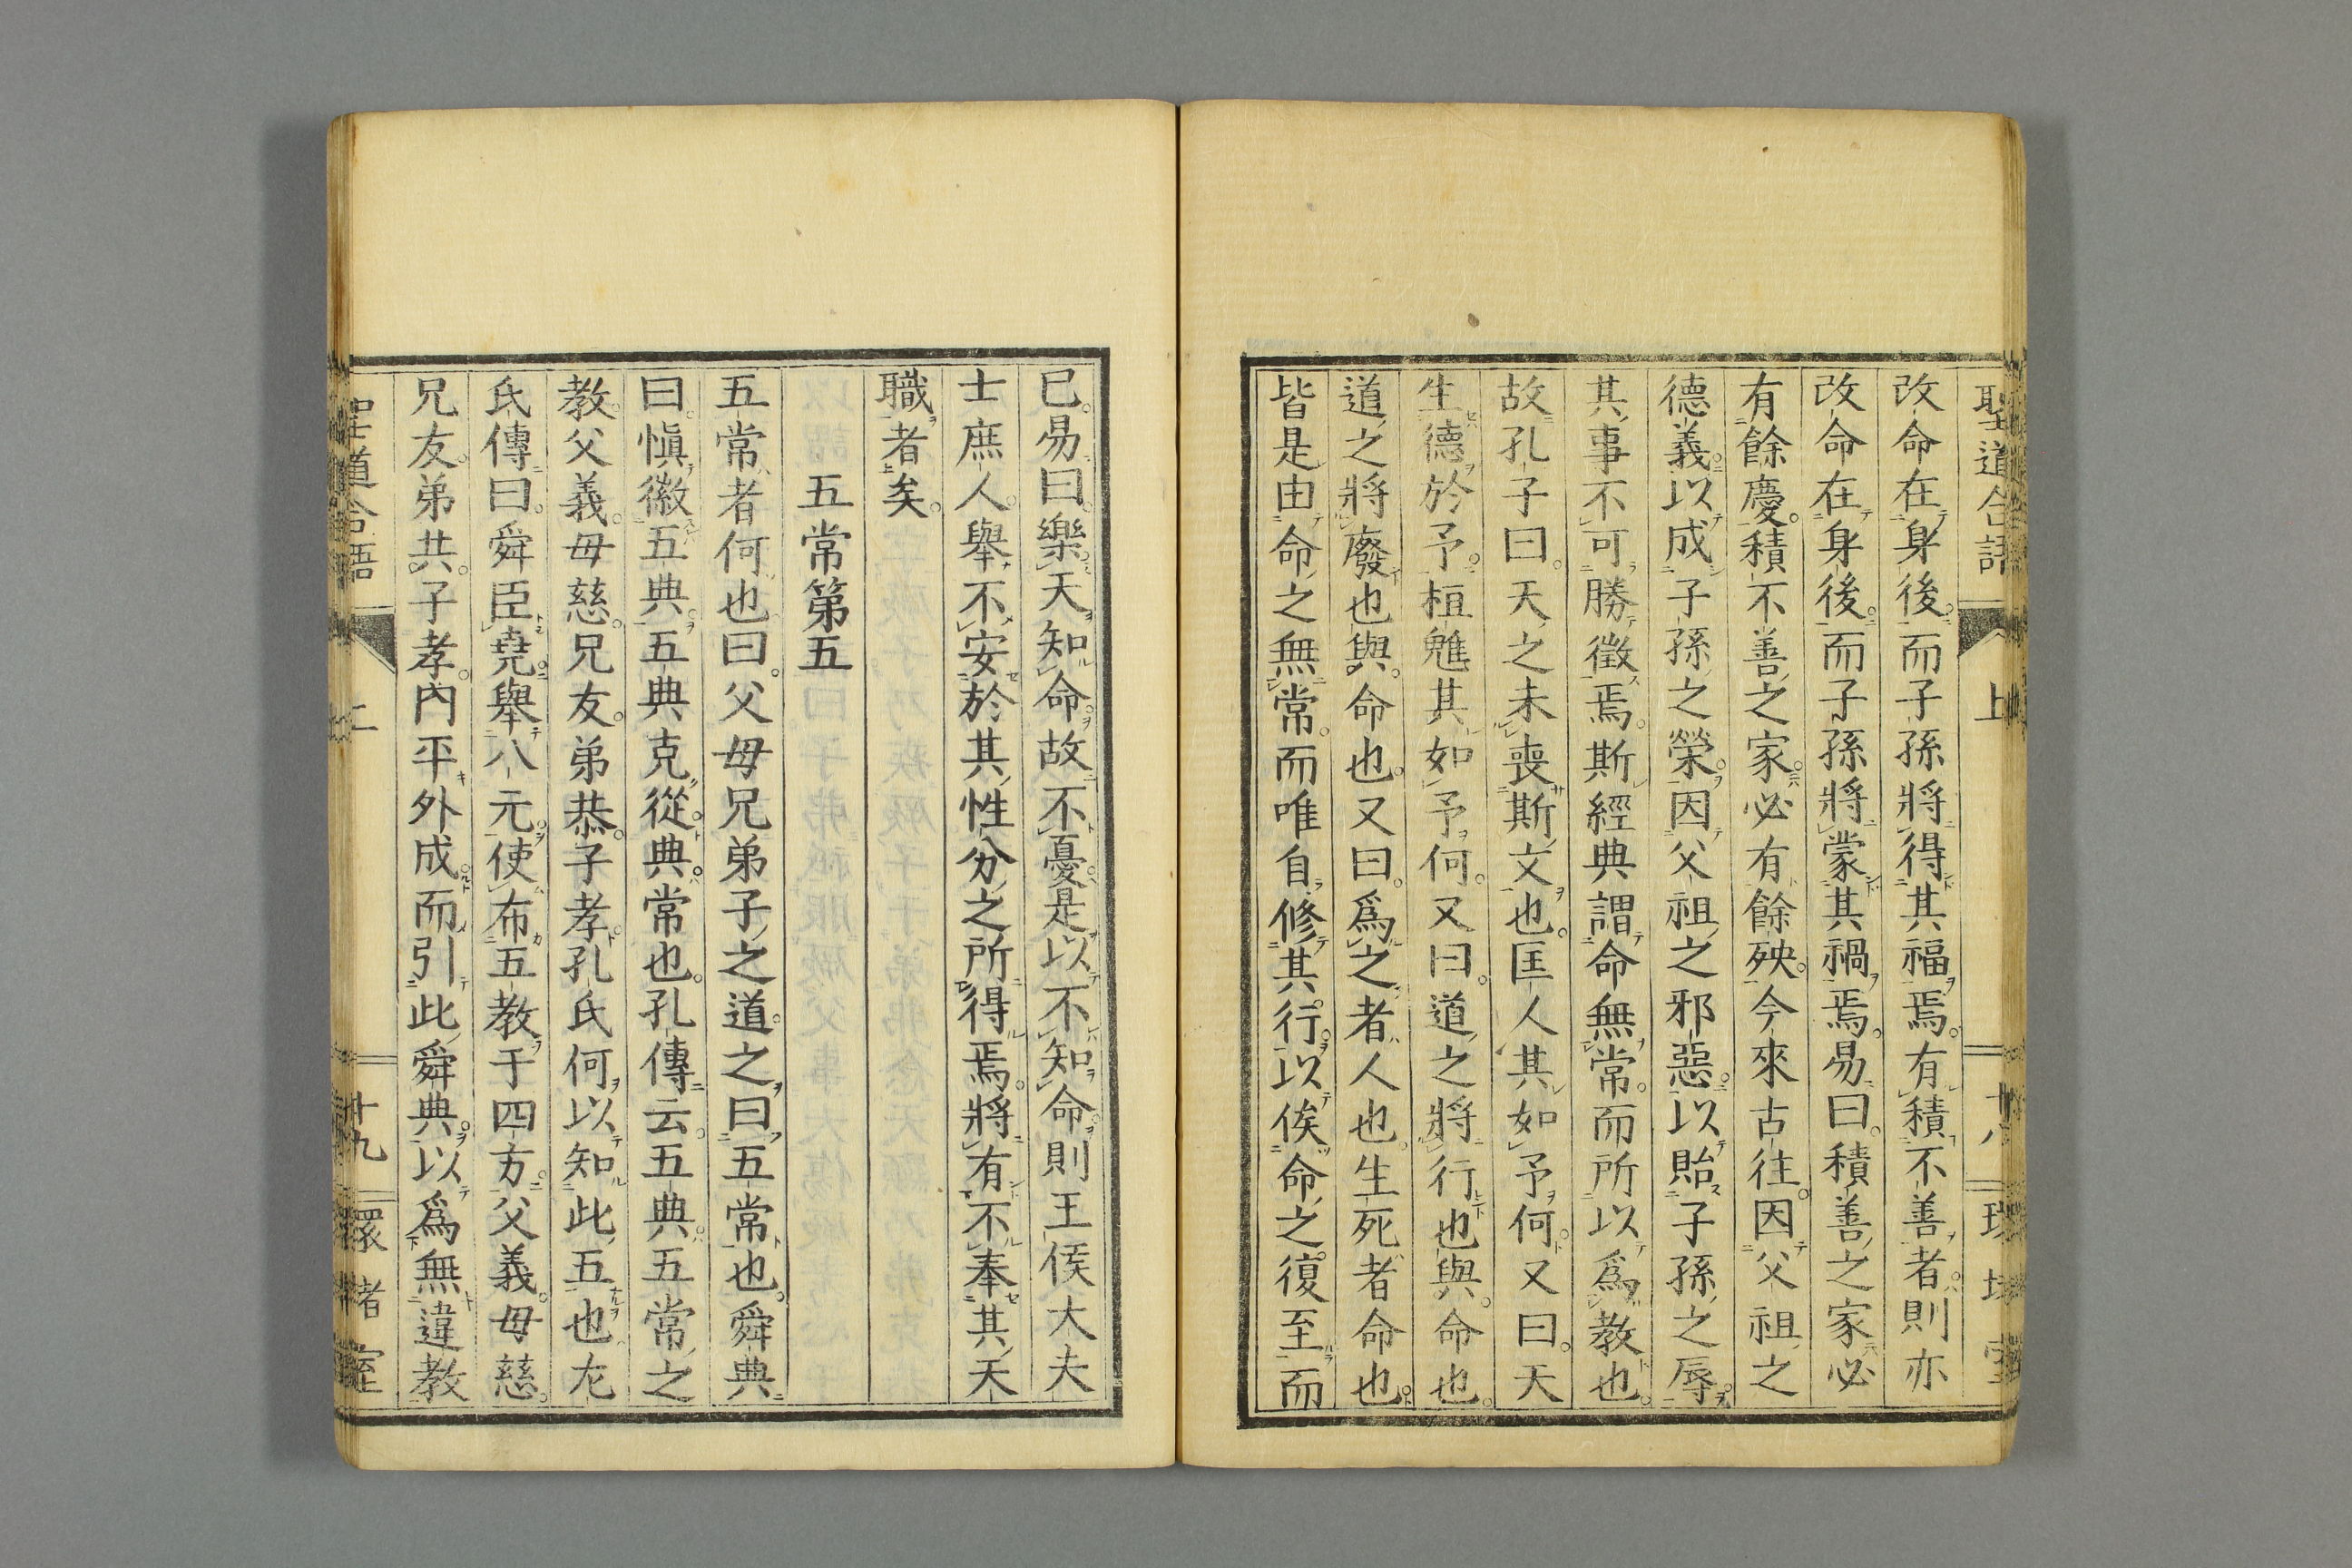 聖道合語 上 十八
改命在身後而子孫將得其福焉有積不善者則亦
改命在身後而子孫將蒙其禍焉易曰積善之家必
有餘慶積不善之家必有餘殃今來古往因父祖之
德義以成子孫之榮因父祖之邪惡以貽子孫之辱
其事不可勝徵焉斯經典謂命無常而所以爲教也
故孔子曰天之未喪斯文也匡人其如予何又曰天
生德於予桓魋其如予何又曰道之將行也與命也
道之將廢也與命也又曰爲之者人也生死者命也
皆是由命之無常而唯自修其行以俟命之復至而
已易曰樂天知命故不憂是以不知命則王侯大夫
士庶人舉不安於其性分之所得焉將有不奉其天
職者矣
五常第五
五常者何也曰父母兄弟子之道之曰五常也舜典
曰愼徽五典五典克從典常也孔傳云五典五常之
教父義母慈兄友弟恭子孝孔氏何以知此五也左
氏傳曰舜臣堯舉八元使布五教于四方父義母慈
兄友弟共子孝內平外成而引此舜典以爲無違教
聖道合語 上 十九 環堵室